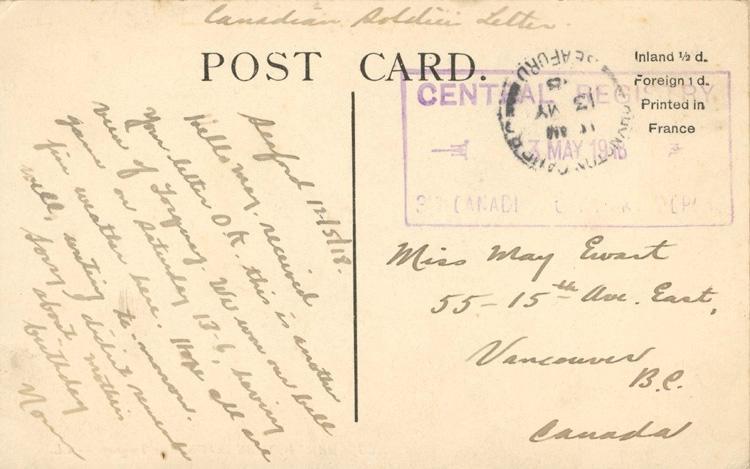 Canadian Soldier Letter.
POST CARD.
Inland ½ d.
Foreign 1 d.
Printed in
France
CENTRAL REGISTRY
13 MY
AM
SEAFORD
13 MAY 1918
CANADI
Seaford 12/5/18.
Hello May. received
your letter O.K. this is another
view of Torquay. We won our ball
game on Saturday 13-6, having
fine weather here. Hope all are
well, writing to-morrow.
Sorry didn't remember
about mothers
birthday
Norm
Miss May Ewart
55-15th Ave. East,
Vancouver
B.C.
Canada